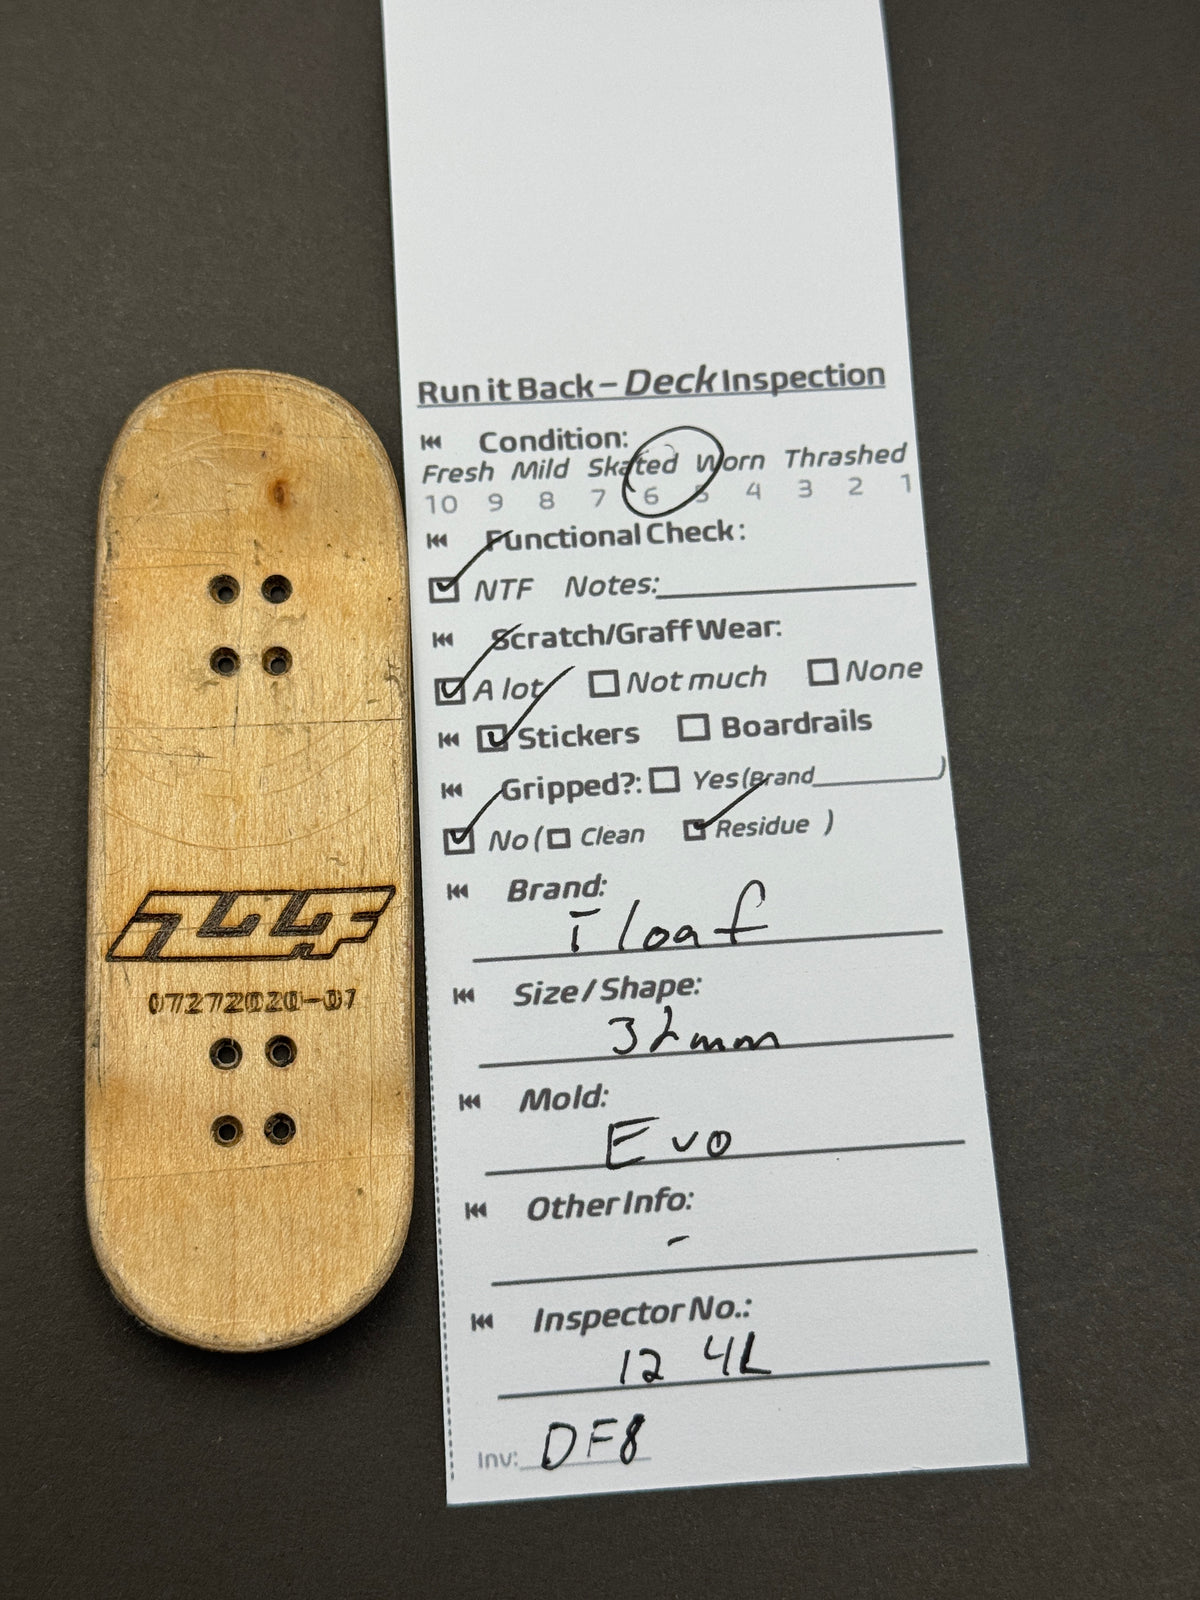 07272020-07
Run it Back – Deck Inspection
Condition:
Fresh Mild Skated Worn Thrashed
10 9 8 7 6 5 4 3 2 1
Functional Check:
NTF Notes:
Scratch/Graff Wear:
A lot Not much None
Stickers Boardrails
Gripped?: Yes (Brand )
No ( Clean Residue )
Brand:
Floaf
Size / Shape:
32mm
Mold:
Evo
Other Info:
-
Inspector No.:
12 4L
Inv: DF8